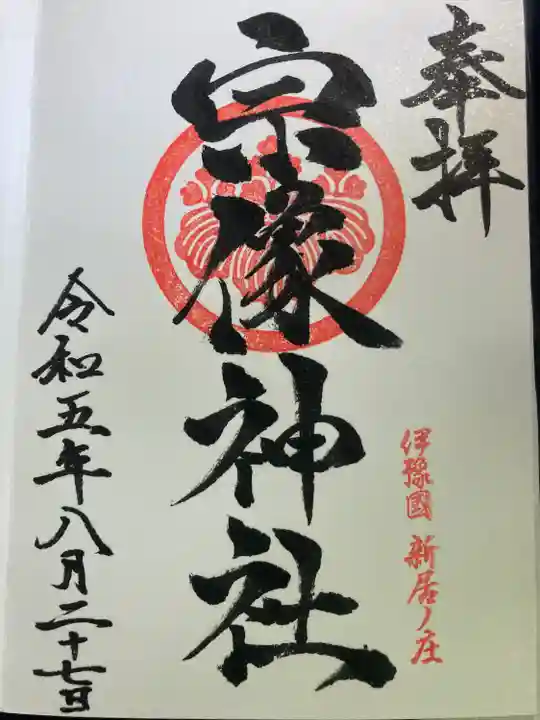 奉拝
伊豫國 新居ノ庄
宗像神社
令和五年八月二十七日